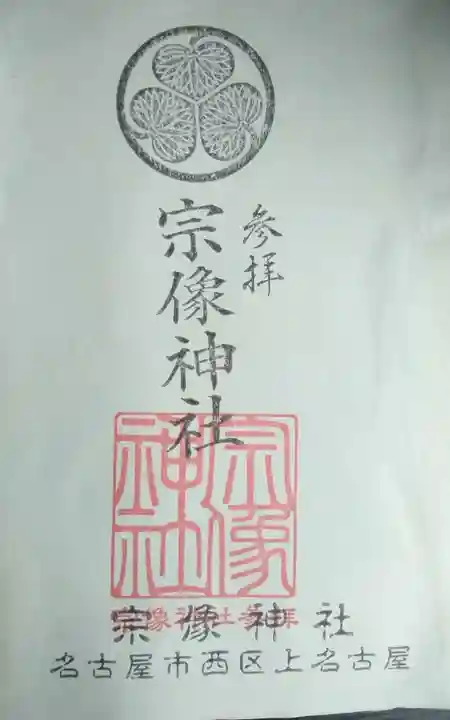 参拝
宗像神社
宗像神社
宗像神社参拝
宗像神社
名古屋市西区上名古屋